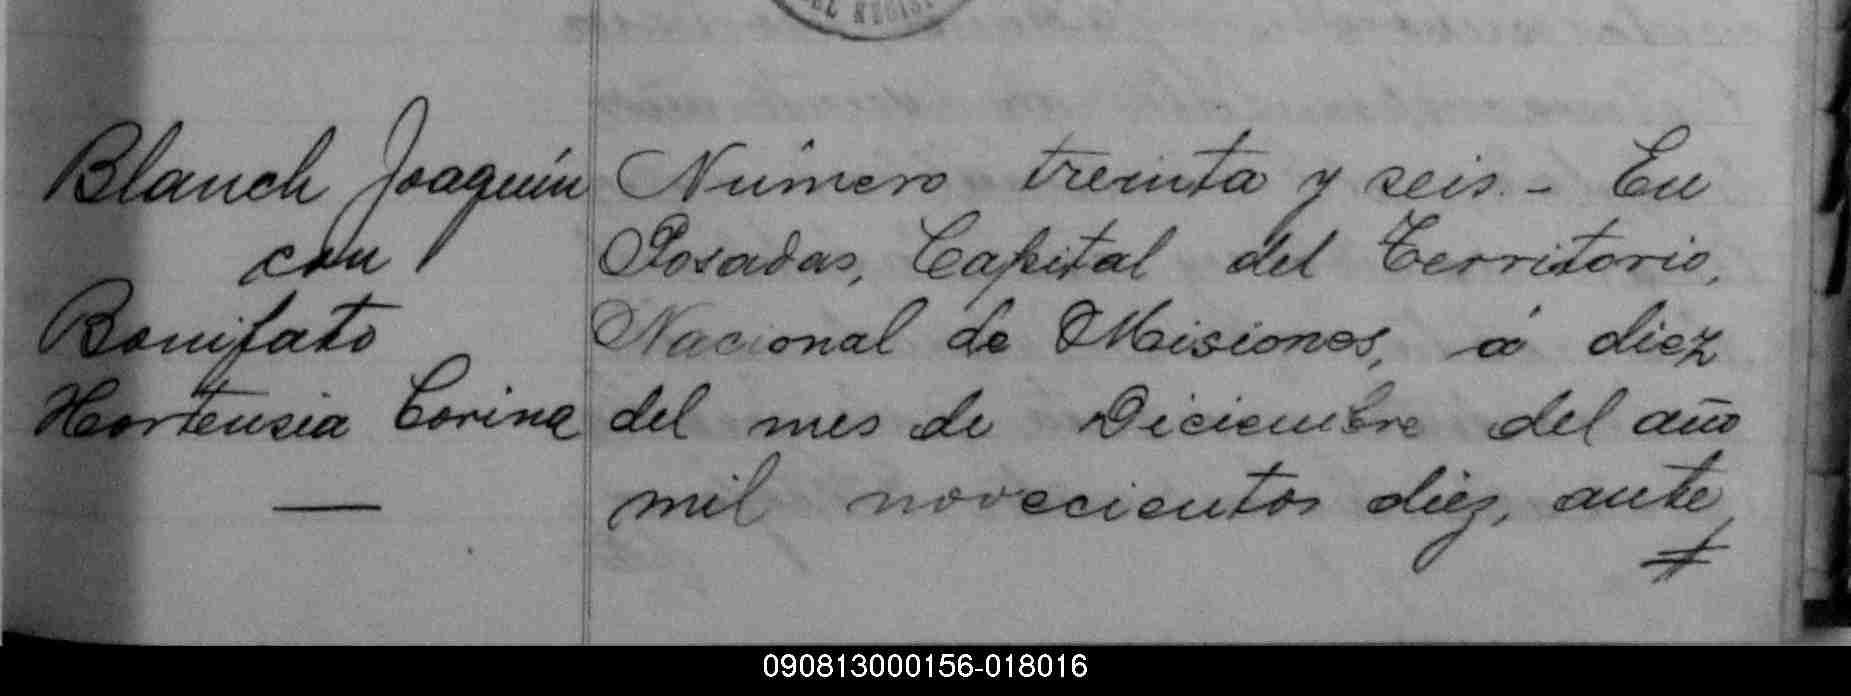 DEL REGIS
Blanch Joaquín
con
Bonifato
Hortensia Corina
Número treinta y seis. - En
Posadas, Capital del Territorio,
Nacional de Misiones, á diez
del mes de Diciembre del año
mil novecientos diez, ante
090813000156-018016